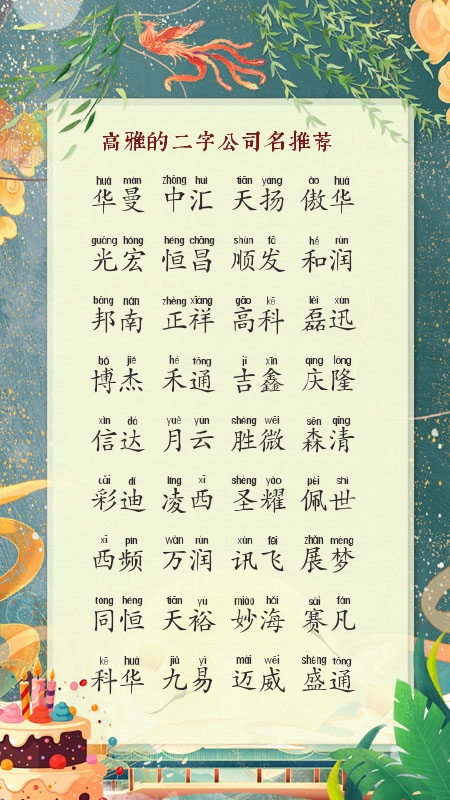 高雅的二字公司名推荐
huá màn zhōng huì tiān yáng ào huá
华曼 中汇 天扬 傲华
guāng hóng héng chāng shùn fā hé rùn
光宏 恒昌 顺发 和润
bāng nán zhèng xiáng gāo kē lěi xùn
邦南 正祥 高科 磊迅
bó jié hé tōng jí xīn qìng lóng
博杰 禾通 吉鑫 庆隆
xìn dá yuè yún shèng wēi sēn qīng
信达 月云 胜微 森清
cǎi dí líng xī shèng yào pèi shì
彩迪 凌西 圣耀 佩世
xī pín wàn rùn xùn fēi zhǎn mèng
西频 万润 讯飞 展梦
tóng héng tiān yù miào hǎi sài fán
同恒 天裕 妙海 赛凡
kē huá jiǔ yì mài wēi shèng tōng
科华 九易 迈威 盛通